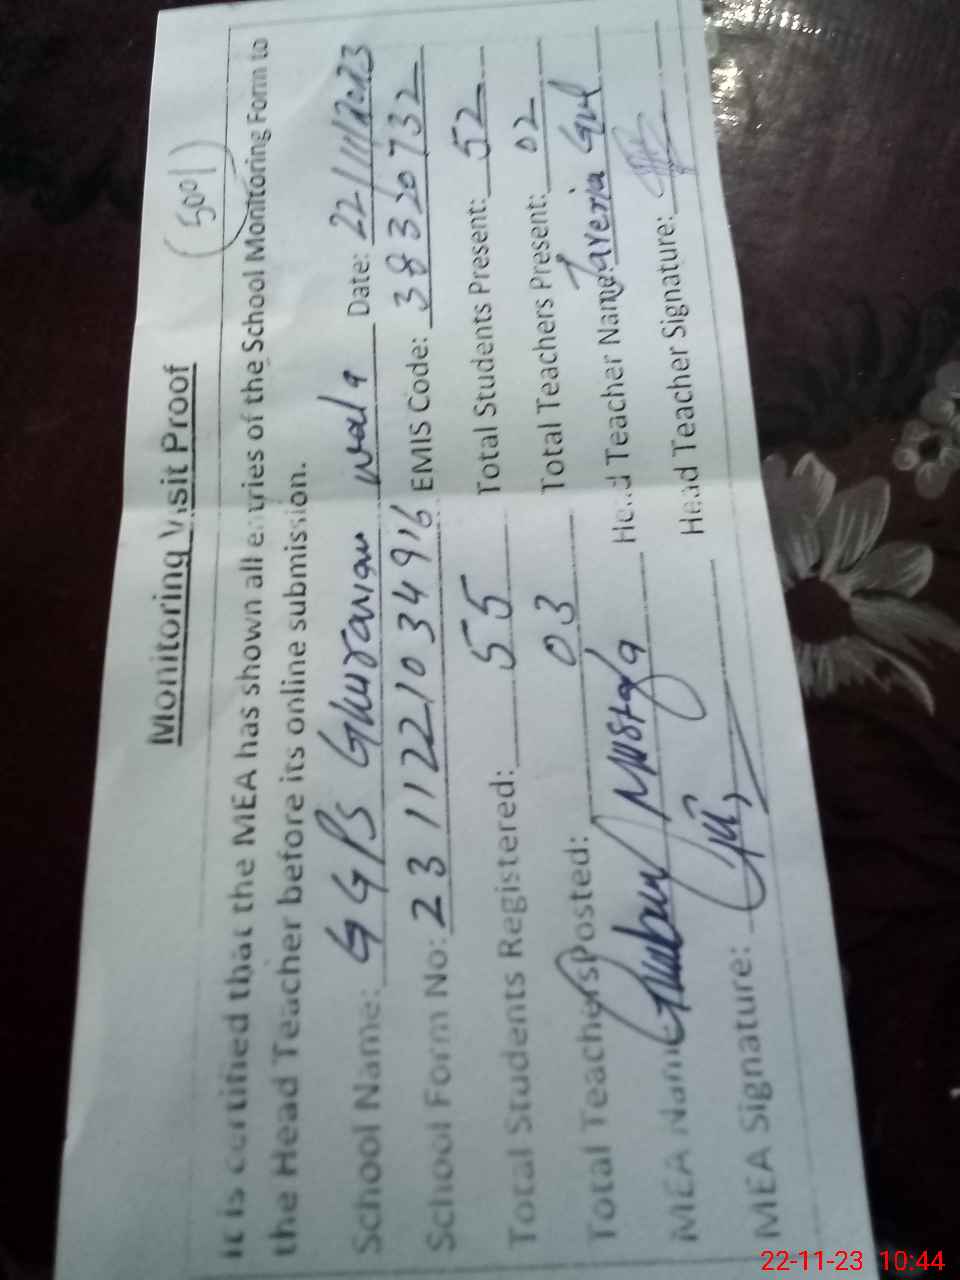 Monitoring Visit Proof
(5001)
It is certified that the MEA has shown all entries of the School Monitoring Form to
the Head Teacher before its online submission.
School Name: GGPS Ghuranian wala Date: 22/11/2023
School Form No: 23112210349 16 EMIS Code: 38320732
Total Students Registered: 55 Total Students Present: 52
Total Teachers Posted: 03 Total Teachers Present: 02
MEA Name: Ghulam Mustafa Head Teacher Name: Javeria Gul
MEA Signature: Head Teacher Signature:
22-11-23 10:44